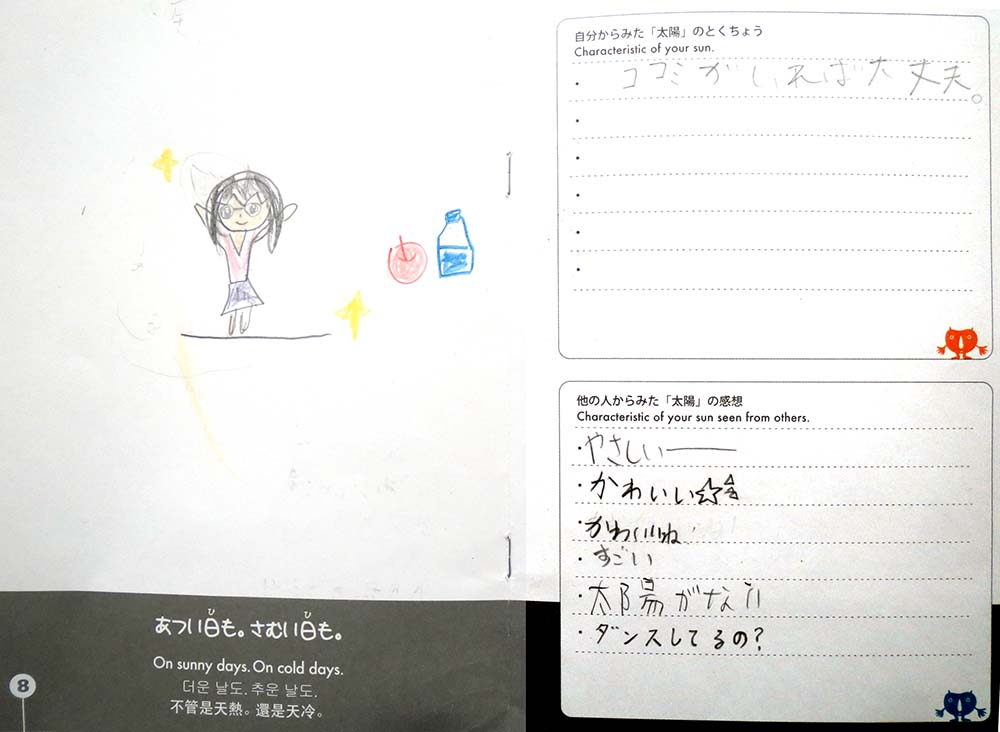 あつい日も。さむい日も。
On sunny days. On cold days.
더운 날도. 추운 날도.
不管是天熱。還是天冷。
8
自分からみた「太陽」のとくちょう
Characteristic of your sun.
・ココミがいれば大丈夫。
他の人からみた「太陽」の感想
Characteristic of your sun seen from others.
・やさしいー
・かわいい☆☆
・かわいいね
・すごい
・太陽がない
・ダンスしてるの?